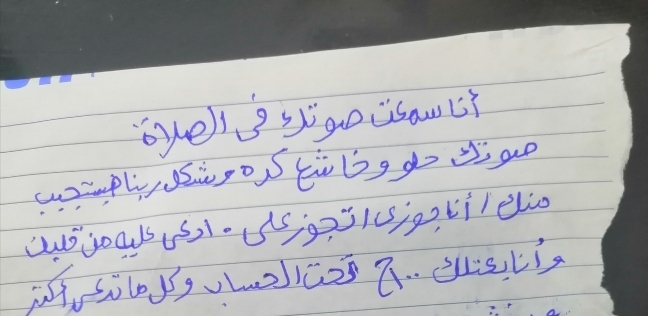 أنا سمعت صوتك فى الصلاة
صوتك حلو وخاشع كده وشكل ربنا هيستجيب
منك / أنا جوزى اتجوز على . ادعى عليه من قلبك
وأنا بعتلك ٢٠٠ج تحت الحساب وكل ما تدعى أكتر